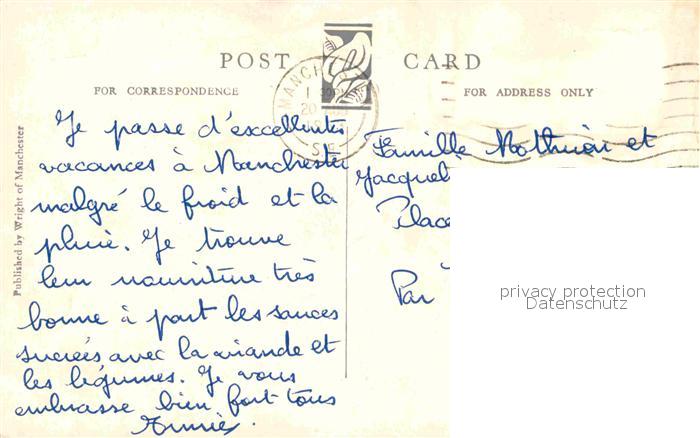 POST CARD
FOR CORRESPONDENCE
FOR ADDRESS ONLY
MANCHESTER
Published by Wright of Manchester
Je passe d'excellentes
vacances à Manchester
malgré le froid et la
pluie. Je trouve
leur nourriture très
bonne à part les sauces
sucrées avec la viande et
les légumes. Je vous
embrasse bien fort tous
Annie.
Famille et
Jacquel
Place
Par
privacy protection
Datenschutz